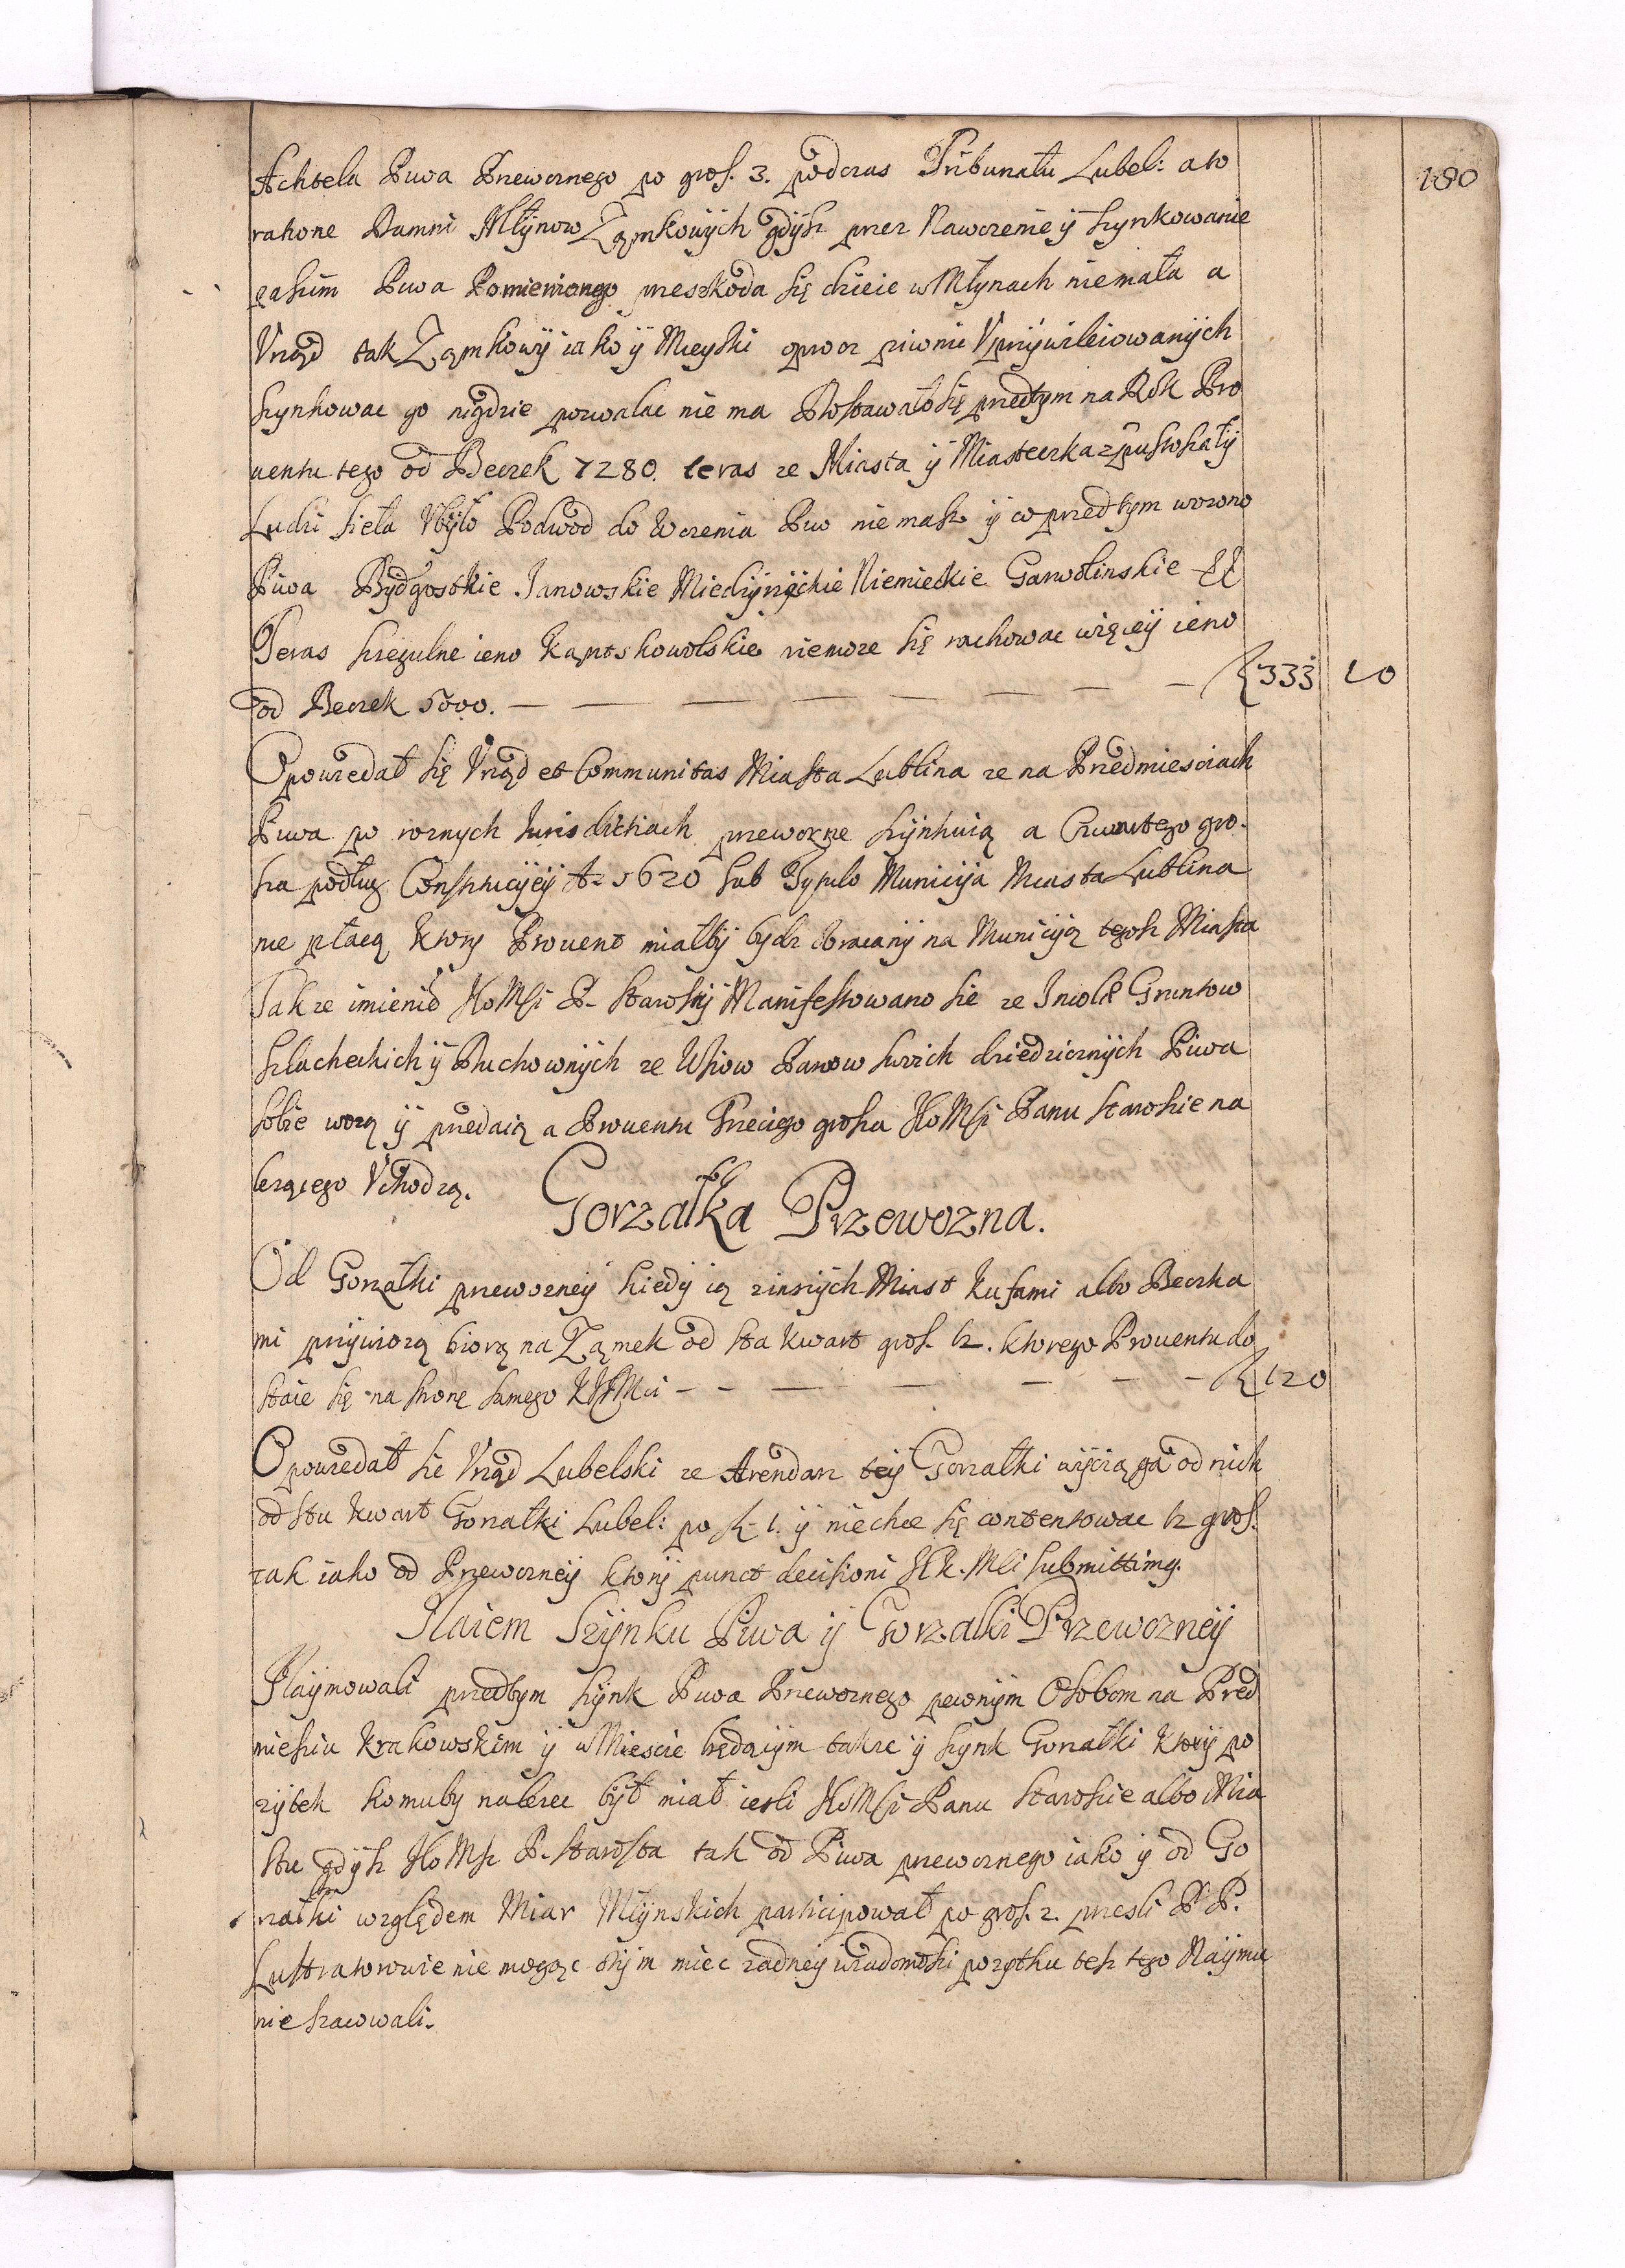 180
Achtela Piwa Przewoznego po gros. 3. podczas Tribunału Lubel: a to
racione Damni Młynow Zamkowych gdysz przez Nawozenie ÿ szynkowanie
Piwa Pomienionego przeszkoda się dzieie w Młynach niemała a
Vrząd tak Zamkowÿ iako ÿ Mieyski oprocz piwnic Vprzÿwileiowanÿch
szynkowac go nigdzie pozwalac nie ma Dostawało się przedtym na Rok Pro
uentu tego od Beczek 7280. teras ze Miasta ÿ Miasteczka spustoszałÿ
Ludzi sieła Vbÿło Podwod do Wozenia Piw nie masz ÿ co przedtym wozono
Piwa Bÿdgostkie Janowskie Miedzÿrzÿckie Niemieckie Garwolinskie &c
Teras szczegulne ieno niemoze się rachowac więceÿ ieno
od Beczek 5000. — — — — — — — f 333 10
Opowiedał się Vrząd et Communitas Miasta Lublina ze na Przedmiesciach
Piwa po roznych Iurisdictiach przewozne szÿnkuią a Czwartego gro-
sza podług Constitucÿeÿ Aº 1620 sub Tytulo Municÿia Miasta Lublina
nie płacą Ktory Prouent miałbÿ bydz obracanÿ na Municÿią tegosz Miasta
Takze imienie JeoMsci P. Starostÿ Manifestowano sie ze Incolæ Gruntow
szlacheckich ÿ Duchownÿch ze Wsiow Panow swzich dziedzicznÿch Piwa
sobie wozą ÿ przedaią a Prouentu Trzeciego grosza JeoMsci Panu Staroscie na
lezącego Vchodzą.
Gorzałka Przewozna.
Od Gorzałki przewozneÿ kiedÿ ią z innÿch Miast kufami albo Beczka
mi przÿwiozą biorą na Zamek od sta kwart gros. 12. ktorego Prouentu do
staie się na stronę samego — — — — — — f 120
Opowiedał sie Vrząd Lubelski ze Arendarz teÿ Gorzałki wÿciąga od nich
od stu kwart Gorzałki Lubel: po f. 1. ÿ niechce się contentowac 12 gros.
tak iako od Przewozneÿ ktorÿ punct decisioni submittimg.
Naiem szÿnku Piwa ÿ Gorzałki Przewozneÿ
Naÿmowali przedtym szÿnk Piwa Przewoznego pewnÿm Osobom na Przed
miesciu Krakowskim ÿ w Miescie będącÿm takze ÿ szynk Gorzałki Ktorÿ po
zÿtek komuby nalezec bÿł miał iesli JeoMsci Panu Staroscie albo Mia
stu gdÿsz JeoMsc P. Starosta tak od Piwa przewoznego iako ÿ od Go
rzałki względem Miar Młÿnskich participował po gros. 2. przesli P P.
Lustratorowie nie mogąc o tÿm miec zadneÿ wiadomosci pozytku tesz tego Naÿmu
nie szacowali.